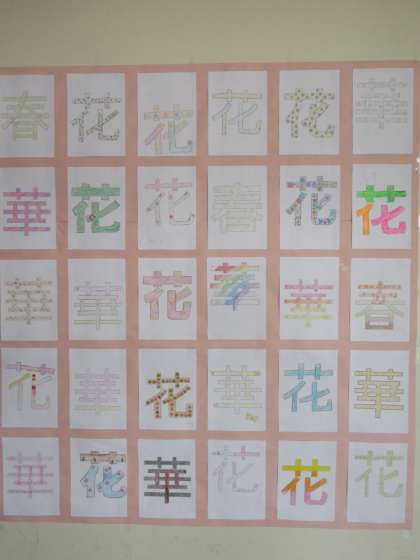 春 花 花 花 花 華
華 花 花 春 花 花
華 華 花 華 華 春
花 華 花 華 花 華
華 花 華 花 花 花